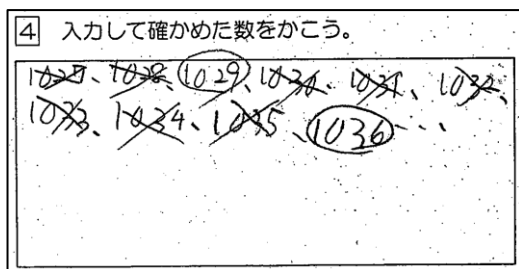 4 入力して確かめた数をかこう。
1027、1028、1029、1030、1031、1032、
1033、1034、1035、1036…